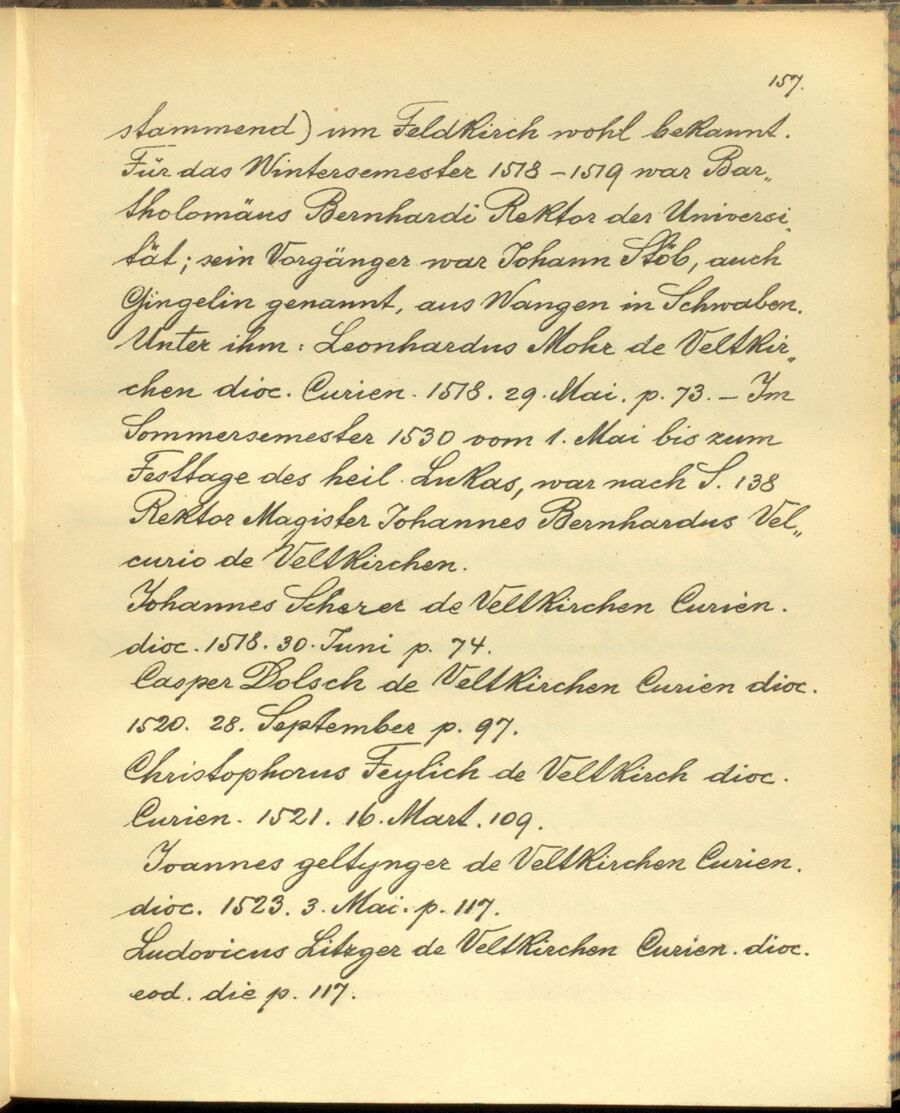 157.
stammend) um Feldkirch wohl bekannt.
Für das Wintersemester 1518 – 1519 war Bar„
tholomäus Bernhardi Rektor der Universi„
tät; sein Vorgänger war Johann Stöb, auch
Gingelin genannt, aus Wangen in Schwaben.
Unter ihm: Leonhardus Mohr de Veltkir„
chen dioc. Curien. 1518. 29. Mai. p. 73. – Im
Sommersemester 1530 vom 1. Mai bis zum
Festtage des heil. Lukas, war nach S. 138
Rektor Magister Johannes Bernhardus Vel„
curio de Veltkirchen.
Johannes Scherer de Veltkirchen Curien.
dioc. 1518. 30. Juni p. 74.
Casper Dolsch de Veltkirchen Curien dioc.
1520. 28. September p. 97.
Christophorus Feylich de Veltkirch dioc.
Curien. 1521. 16. Mart. 109.
Joannes geltynger de Veltkirchen Curien.
dioc. 1523. 3. Mai. p. 117.
Ludovicus Litzger de Veltkirchen Curien. dioc.
eod. die p. 117.